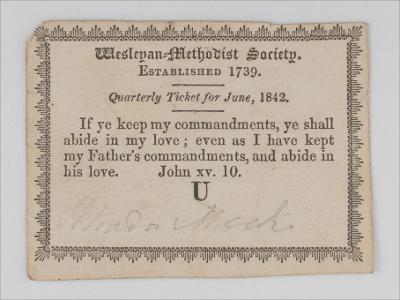 Wesleyan-Methodist Society.
ESTABLISHED 1739.
Quarterly Ticket for June, 1842.
If ye keep my commandments, ye shall
abide in my love; even as I have kept
my Father's commandments, and abide in
his love. John XV. 10.
U
Meek